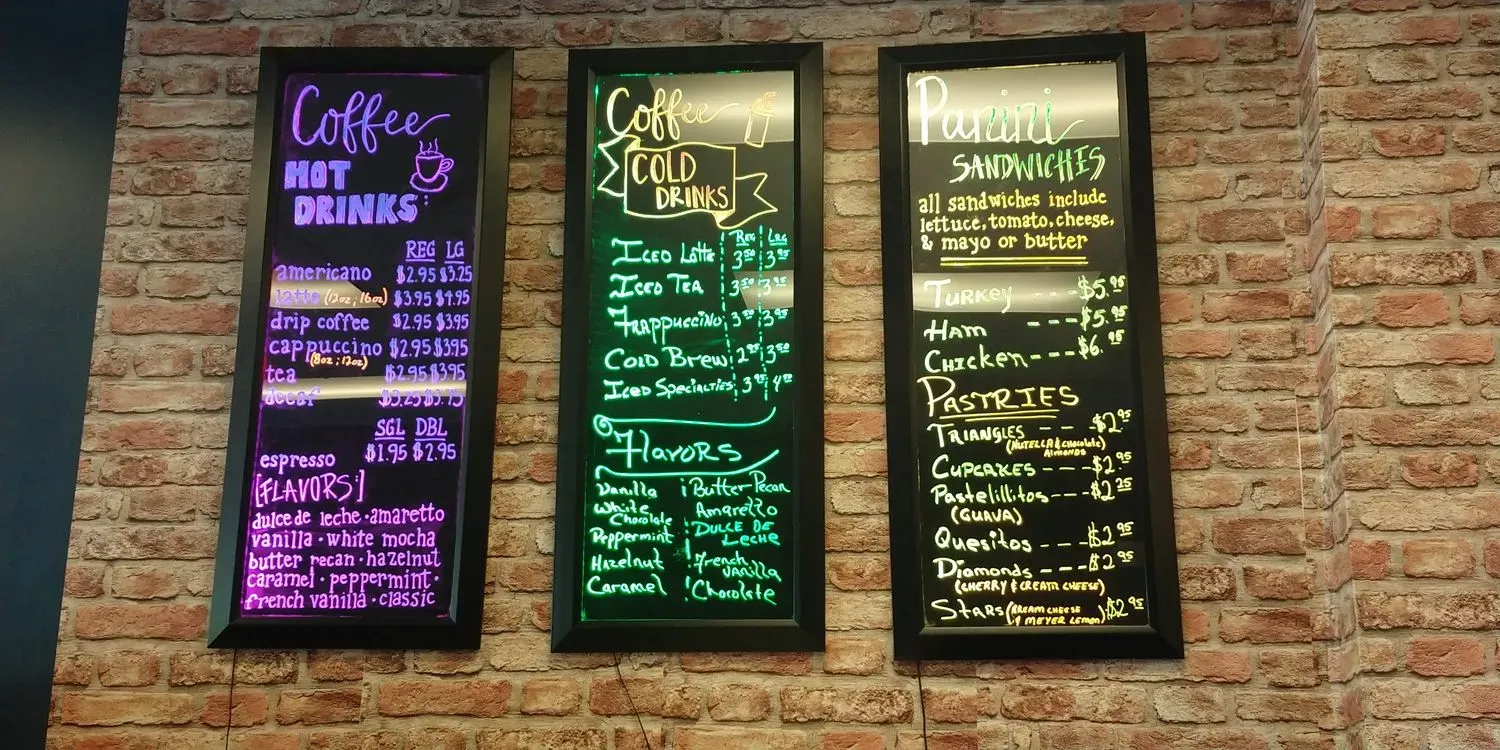 Coffee
HOT
DRINKS
REG LG
americano $2.95 $3.25
latte (12oz; 16oz) $3.95 $4.95
drip coffee $2.95 $3.95
cappuccino $2.95 $3.95
(8oz; 12oz)
tea $2.95 $3.95
decaf $3.25 $3.75
SGL DBL
espresso $1.95 $2.95
[FLAVORS]
dulce de leche · amaretto
vanilla · white mocha
butter pecan · hazelnut
caramel · peppermint ·
french vanilla · classic
Coffee
COLD
DRINKS
REG LRG
ICED LATTE 3.50 3.95
ICED TEA 3.50 3.95
FRAPPUCCINO 3.50 3.95
COLD BREW 2.95 3.50
ICED SPECIALTIES 3.95 4.50
FLAVORS
Vanilla Butter Pecan
White Chocolate Amaretto
Peppermint DULCE DE LECHE
Hazelnut French Vanilla
Caramel Chocolate
Panini
SANDWICHES
all sandwiches include
lettuce, tomato, cheese,
& mayo or butter
TURKEY - - $5.95
HAM - - - $5.95
CHICKEN - - - $6.95
PASTRIES
TRIANGLES - - $2.95
(NUTELLA & chocolate)
ALMONDS
CUPCAKES - - - $2.95
Pastelillitos - - - $2.25
(GUAVA)
Quesitos - - - $2.95
Diamonds - - - $2.95
(CHERRY & CREAM CHEESE)
STARS (CREAM CHEESE & MEYER LEMON) $2.95